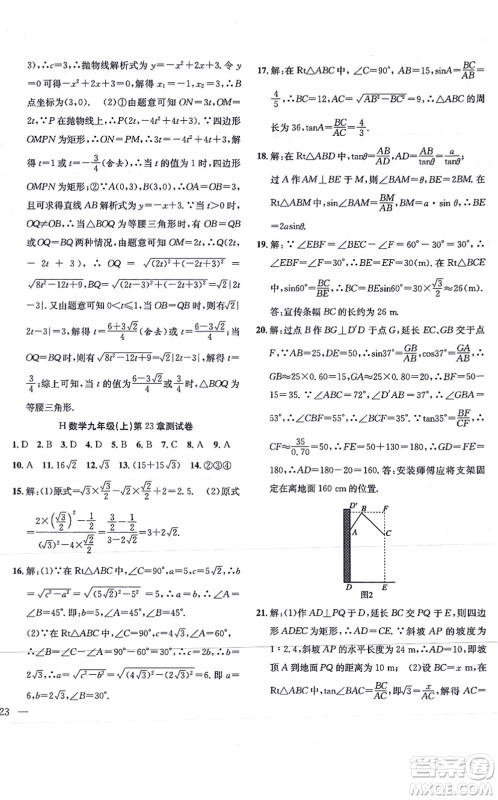 3),∴c=3;∴抛物线解析式为y=-x²+2x+3,∴B
点坐标为(3,0). (2)①由题意可知ON=3t,OM=
2t,∵P在抛物线上,∴P(2t,-4t²+4t+3),∵四边形
OMPN为矩形,∴PM=ON,∴-4t²+4t+3=3t,解
得t=1或t=-3/4(舍去),∴当t的值为1时,四边形
OMPN为矩形;②∵A(0,3),B(3,0),∴OA=OB=3,
且可求得直线AB解析式为y=-x+3,∴当t>0时,
OQ≠OB,∴当△BOQ为等腰三角形时,有OB=QB或
OQ=BQ两种情况,由题意可知OM=2t,∴Q(2t,
-2t+3),∴OQ=√((2t)²+(-2t+3)²)=
√(8t²-12t+9),BQ=√((2t-3)²+(-2t+3)²)=√2|2t
-3|,又由题意可知0<t≤1,当OB=QB时,则有√2|
2t-3|=3,解得t=(6+3√2)/4(舍去)或t=(6-3√2)/4;当
OQ=BQ时,则有√(8t²-12t+9)=√2|2t-3|,解得t=
3/4;综上可知当t的值为(6-3√2)/4或3/4时,△BOQ为
等腰三角形.
H数学九年级(上)第23章测试卷
1. D 2. D 3. B 4. D 5. B 6. D 7. C 8. D 9. A
10. A 11. 16√2 12. 4/3 13. (15+15√3) 14. ②③④
15. 解:(1)原式=√3×√3/2+√2×√2/2=2.5. (2)原式
=(2×(√3/2)²+2×√3/2×√3/2)/((√3)²-4×(√2/2)²)=(3/2+3/2)/(3-2)=3.
16. 解:(1)∵在Rt△ABC中,∠C=90°,a=5,c=5√2,∴
b=√(c²-a²)=√((5√2)²-5²)=5,∴a=b,∴∠A=
∠B=45°,即b=5,∠A=45°,∠B=45°.
(2)∵在Rt△ABC中,∠C=90°,c=4√3,∠A=60°,∴
∠B=90°-∠A=90°-60°=30°.∴b=1/2c=1/2×4√3
=2√3,∴a=√(c²-b²)=√((4√3)²-(2√3)²)=6,即a=
6,b=2√3,∠B=30°.
17. 解:在Rt△ABC中,∠C=90°,AB=15,sinA=BC/AB=
4/5,∴BC=12,AC=√(AB²-BC²)=9,∴△ABC的周
长为36,tanA=BC/AC=4/3.
18. 解:∵在Rt△ABD中,tanθ=AB/AD,AD=AB/tanθ=a/tanθ;
过点A作AM⊥BE于M,则BE=2BM.在Rt△ABM
中,∵sin∠BAM=BM/AB,∴BM=AB·sinθ=asinθ,∴BE
=2asinθ.
19. 解:∵∠EBF=∠EBC-∠FBC=30°,∠EFB=
∠FBC=30°,∴BE=EF=30(m). 在Rt△BEC中,
sin60°=BC/BE,∴BC=BEsin60°=30×√3/2≈26(m).
答:宣传条幅BC的长约为26 m.
20. 解:过点B作BG⊥D'D于点G,延长EC、GB交于点
F,∵AB=25,DE=50,∴sin37°=GB/AB,cos37°=GA/AB,
∴GB≈25×0.60=15,GA≈25×0.80=20,∴BF=50
-15=35,∵∠ABC=72°,∠D'AB=37°,∴∠GBA=
53°,∴∠CBF=55°,∴∠BCF=35°,∵tan35°=BF/CF,∴
CF≈35/0.70=50,∴FE≈50+130=180,∴GD=FE=
180,∴AD=180-20=160,∴安装师傅应将支架固
定在离地面160 cm的位置.
D' B F
A C
D E
图2
21. 解:(1)作AD⊥PQ于D,延长BC交PQ于E,则四边
形ADEC为矩形,∴AD=CE,∵斜坡AP的坡度为
1∶2.4,斜坡AP的水平长度为24 m,∴AD=10,即坡
顶A到地面PQ的距离为10 m; (2)设BC=x m,在
Rt△BPE中,∠BPE=45°,∴PE=BE=x+10,∴AC=
DE=x+10-24=x-14,在Rt△ABC中,∠BAC=
60°,∴tan∠BAC=BC/AC,即√3=x/(x-14),解得,x=
23